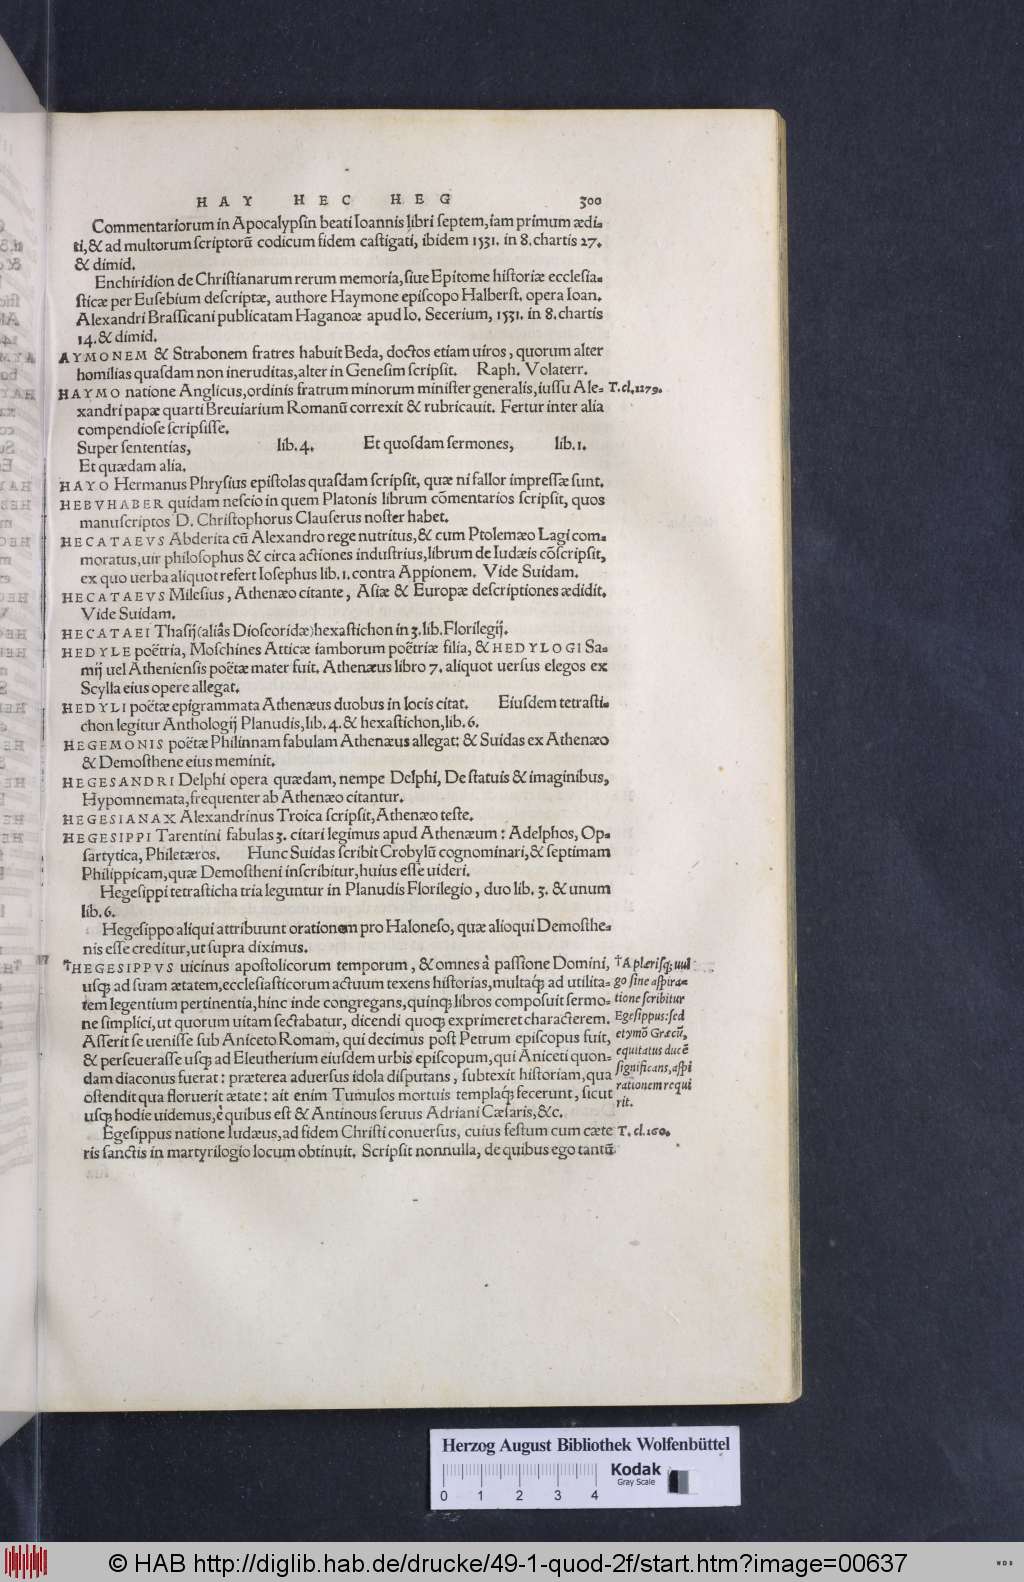 HAY HEC HEG 300
Commentariorum in Apocalypſin beati Ioannis libri ſeptem, iam primum ædi-
ti, & ad multorum ſcriptorũ codicum fidem caſtigati, ibidem 1531. in 8. chartis 27.
& dimid.
Enchiridion de Chriſtianarum rerum memoria, ſiue Epitome hiſtoriæ eccleſia-
ſticæ per Euſebium deſcriptæ, authore Haymone epiſcopo Halberſt. opera Ioan.
Alexandri Braſſicani publicatam Haganoæ apud Io. Secerium, 1531. in 8. chartis
14. & dimid.
AYMONEM & Strabonem fratres habuit Beda, doctos etiam uiros, quorum alter
homilias quaſdam non ineruditas, alter in Geneſim ſcripſit. Raph. Volaterr.
HAYMO natione Anglicus, ordinis fratrum minorum miniſter generalis, iuſſu Ale- T. cl. 1279.
xandri papæ quarti Breuiarium Romanũ correxit & rubricauit. Fertur inter alia
compendioſe ſcripſiſſe.
Super ſententias, lib. 4. Et quoſdam ſermones, lib. 1.
Et quædam alia.
HAYO Hermanus Phryſius epiſtolas quaſdam ſcripſit, quæ ni fallor impreſſæ ſunt.
HEBVHABER quidam neſcio in quem Platonis librum cõmentarios ſcripſit, quos
manuſcriptos D. Chriſtophorus Clauſerus noſter habet.
HECATAEVS Abderita cũ Alexandro rege nutritus, & cum Ptolemæo Lagi com-
moratus, uir philoſophus & circa actiones induſtrius, librum de Iudæis cõſcripſit,
ex quo uerba aliquot refert Ioſephus lib. 1. contra Appionem. Vide Suidam.
HECATAEVS Mileſius, Athenæo citante, Aſiæ & Europæ deſcriptiones ædidit.
Vide Suidam.
HECATAEI Thaſij (aliâs Dioſcoridæ) hexaſtichon in 3. lib. Florilegij.
HEDYLE poëtria, Moſchines Atticæ iamborum poëtriæ filia, & HEDYLOGI Sa-
mij uel Athenienſis poëtæ mater fuit. Athenæus libro 7. aliquot uerſus elegos ex
Scylla eius opere allegat.
HEDYLI poëtæ epigrammata Athenæus duobus in locis citat. Eiuſdem tetraſti-
chon legitur Anthologij Planudis, lib. 4. & hexaſtichon, lib. 6.
HEGEMONIS poëtæ Philinnam fabulam Athenæus allegat: & Suidas ex Athenæo
& Demoſthene eius meminit.
HEGESANDRI Delphi opera quædam, nempe Delphi, De ſtatuis & imaginibus,
Hypomnemata, frequenter ab Athenæo citantur.
HEGESIANAX Alexandrinus Troica ſcripſit, Athenæo teſte.
HEGESIPPI Tarentini fabulas 3. citari legimus apud Athenæum: Adelphos, Op-
ſartytica, Philetæros. Hunc Suidas ſcribit Crobylũ cognominari, & ſeptimam
Philippicam, quæ Demoſtheni inſcribitur, huius eſſe uideri.
Hegeſippi tetraſticha tria leguntur in Planudis Florilegio, duo lib. 3. & unum
lib. 6.
Hegeſippo aliqui attribuunt orationem pro Haloneſo, quæ alioqui Demoſthe-
nis eſſe creditur, ut ſupra diximus.
†HEGESIPPVS uicinus apoſtolicorum temporum, & omnes à paſſione Domini, †A pleriſq; uul
uſq; ad ſuam ætatem, eccleſiaſticorum actuum texens hiſtorias, multaq́; ad utilita- go ſine aſpira-
tem legentium pertinentia, hinc inde congregans, quinq; libros compoſuit ſermo- tione ſcribitur
ne ſimplici, ut quorum uitam ſectabatur, dicendi quoq; exprimeret characterem. Egeſippus: ſed
Aſſerit ſe ueniſſe ſub Aniceto Romam, qui decimus poſt Petrum epiſcopus fuit, etymõ Græcũ,
& perſeueraſſe uſq; ad Eleutherium eiuſdem urbis epiſcopum, qui Aniceti quon- equitatus ducẽ
dam diaconus fuerat: præterea aduerſus idola diſputans, ſubtexit hiſtoriam, qua ſignificans, aſpi
oſtendit qua floruerit ætate: ait enim Tumulos mortuis templaq́; fecerunt, ſicut rationem requi
uſq; hodie uidemus, è quibus eſt & Antinous ſeruus Adriani Cæſaris, &c. rit.
Egeſippus natione Iudæus, ad fidem Chriſti conuerſus, cuius feſtum cum cæte T. cl. 160.
ris ſanctis in martyrilogio locum obtinuit. Scripſit nonnulla, de quibus ego tantũ
Herzog August Bibliothek Wolfenbüttel
Kodak
Gray Scale
0 1 2 3 4
© HAB http://diglib.hab.de/drucke/49-1-quod-2f/start.htm?image=00637